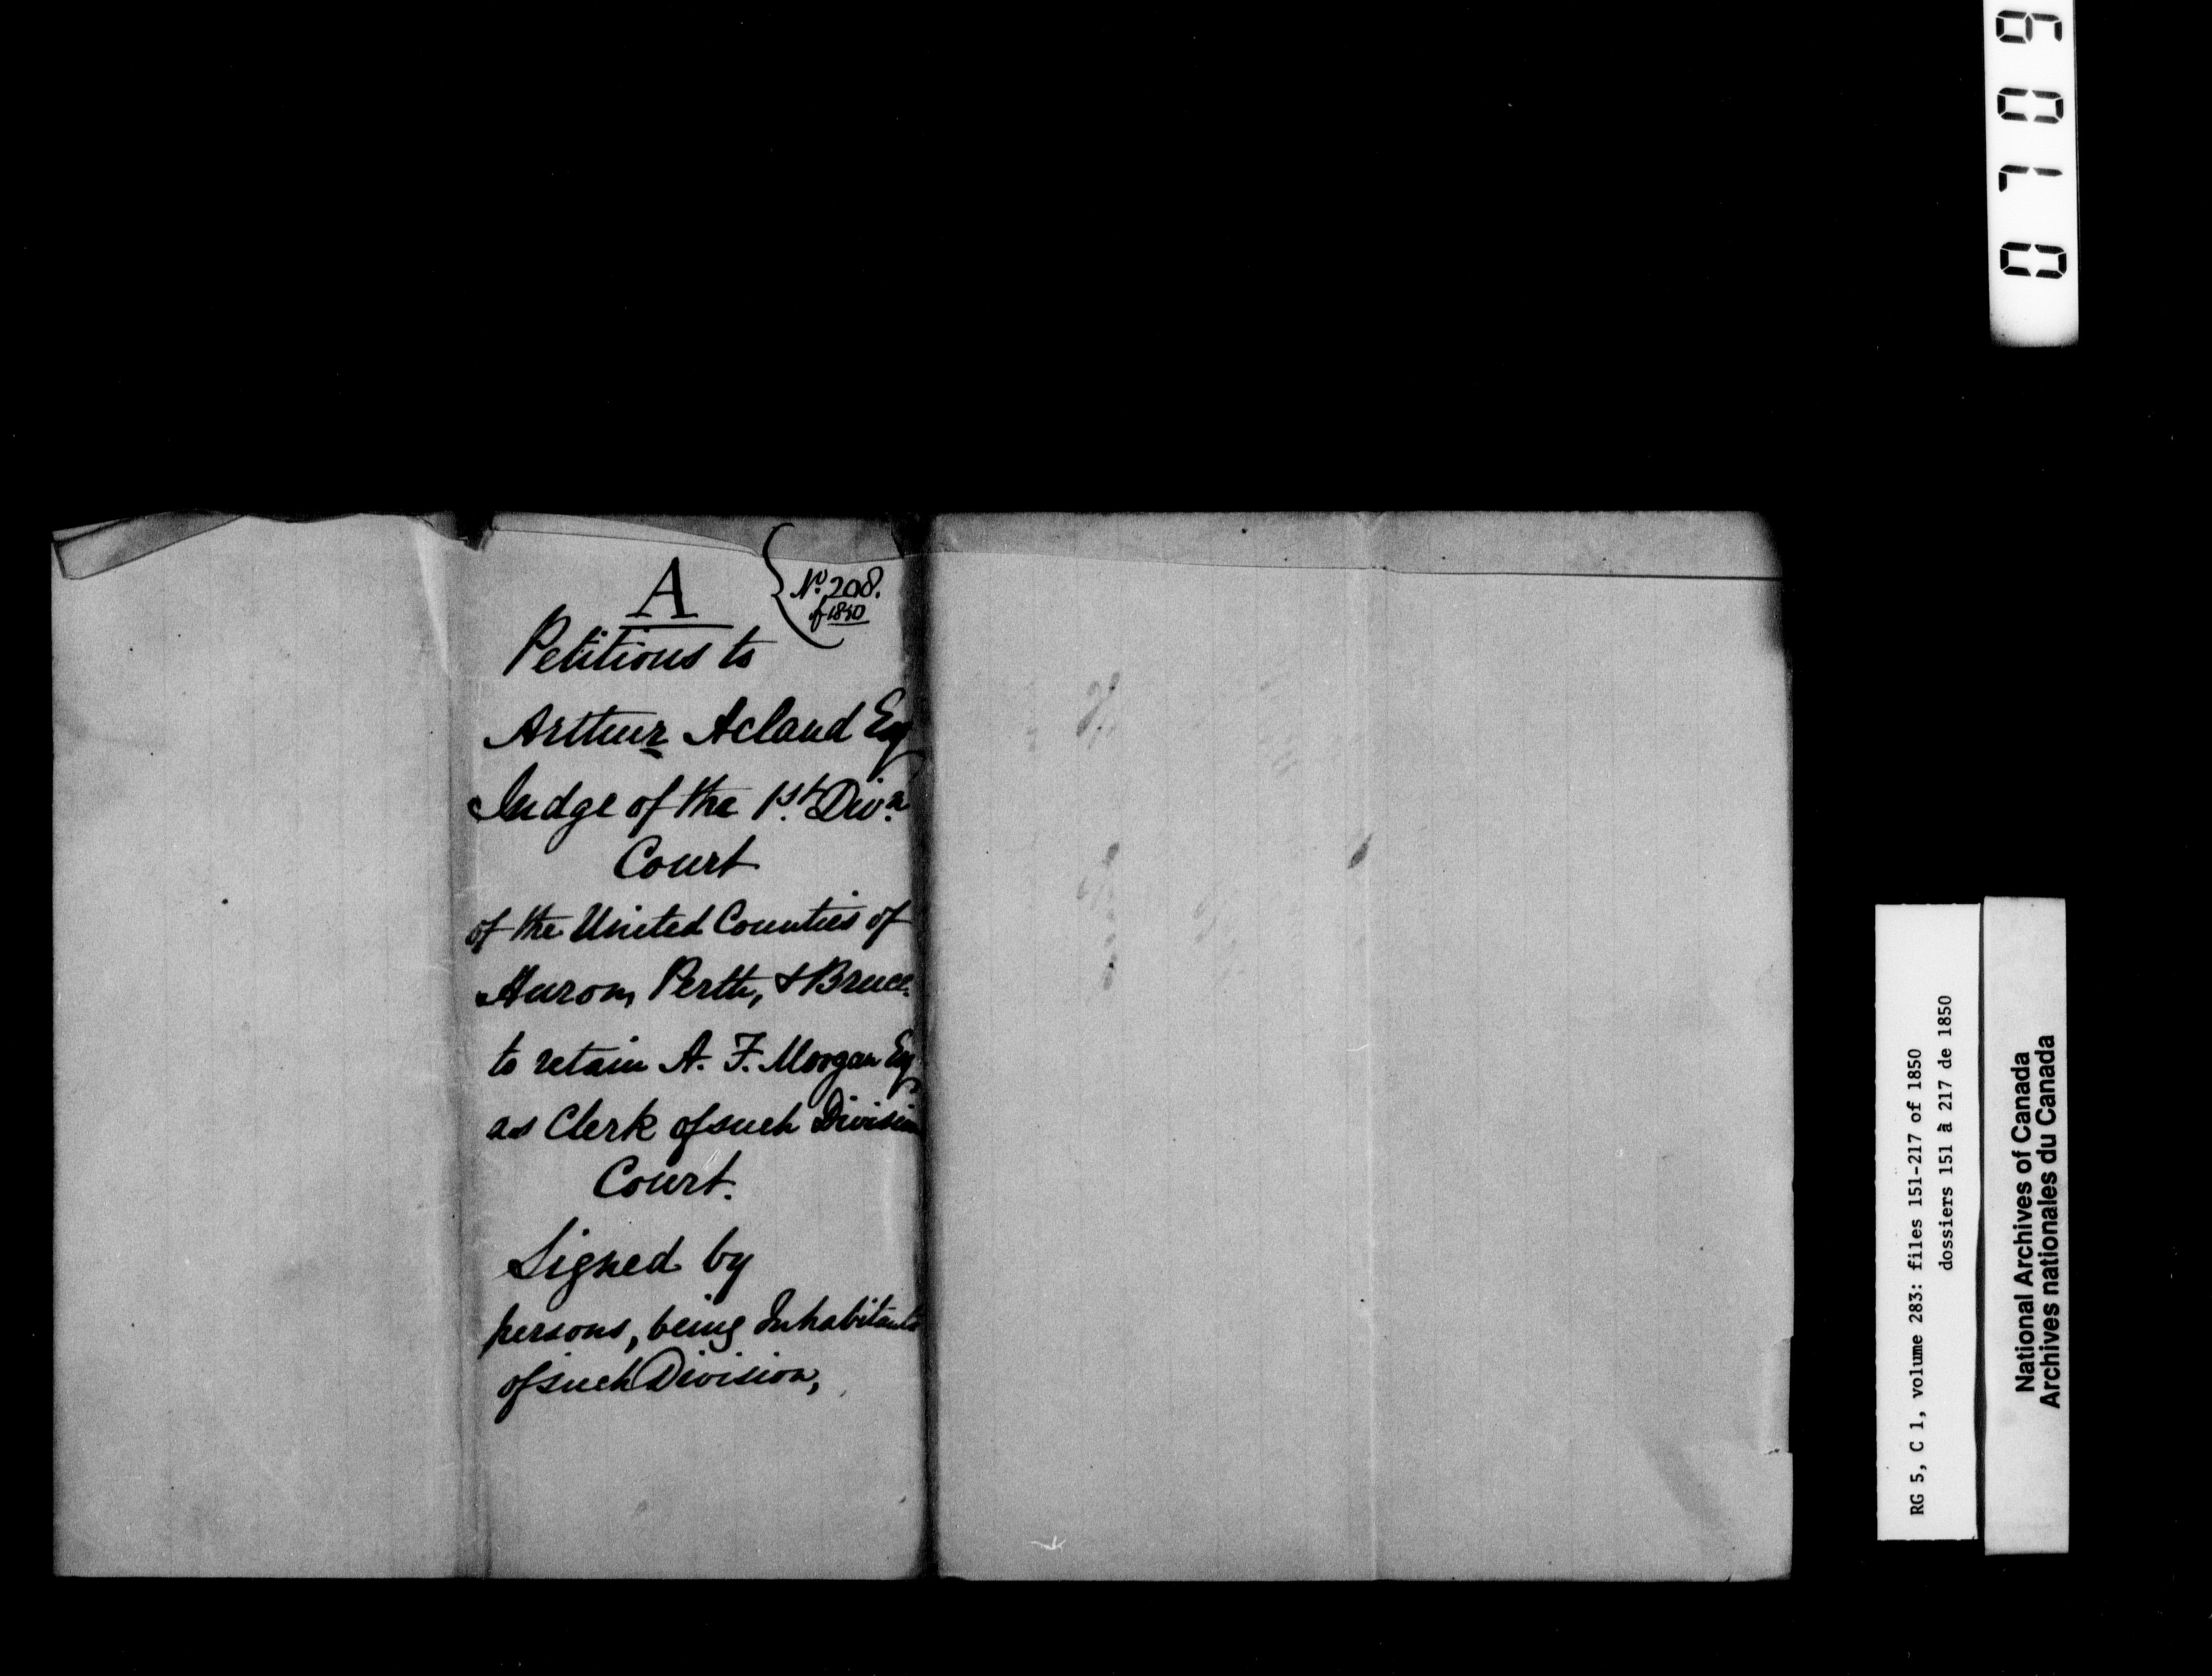 A
No. 208.
of 1850
Petitions to
Arthur Acland Esq
Judge of the 1st. Divn.
Court
of the United Counties of
Huron, Perth, & Bruce.
to retain A. F. Morgan Esq
as Clerk of such Division
Court.
Signed by
persons, being Inhabitants
of such Division,
0709
RG 5, C 1, volume 283: files 151-217 of 1850
dossiers 151 à 217 de 1850
National Archives of Canada
Archives nationales du Canada